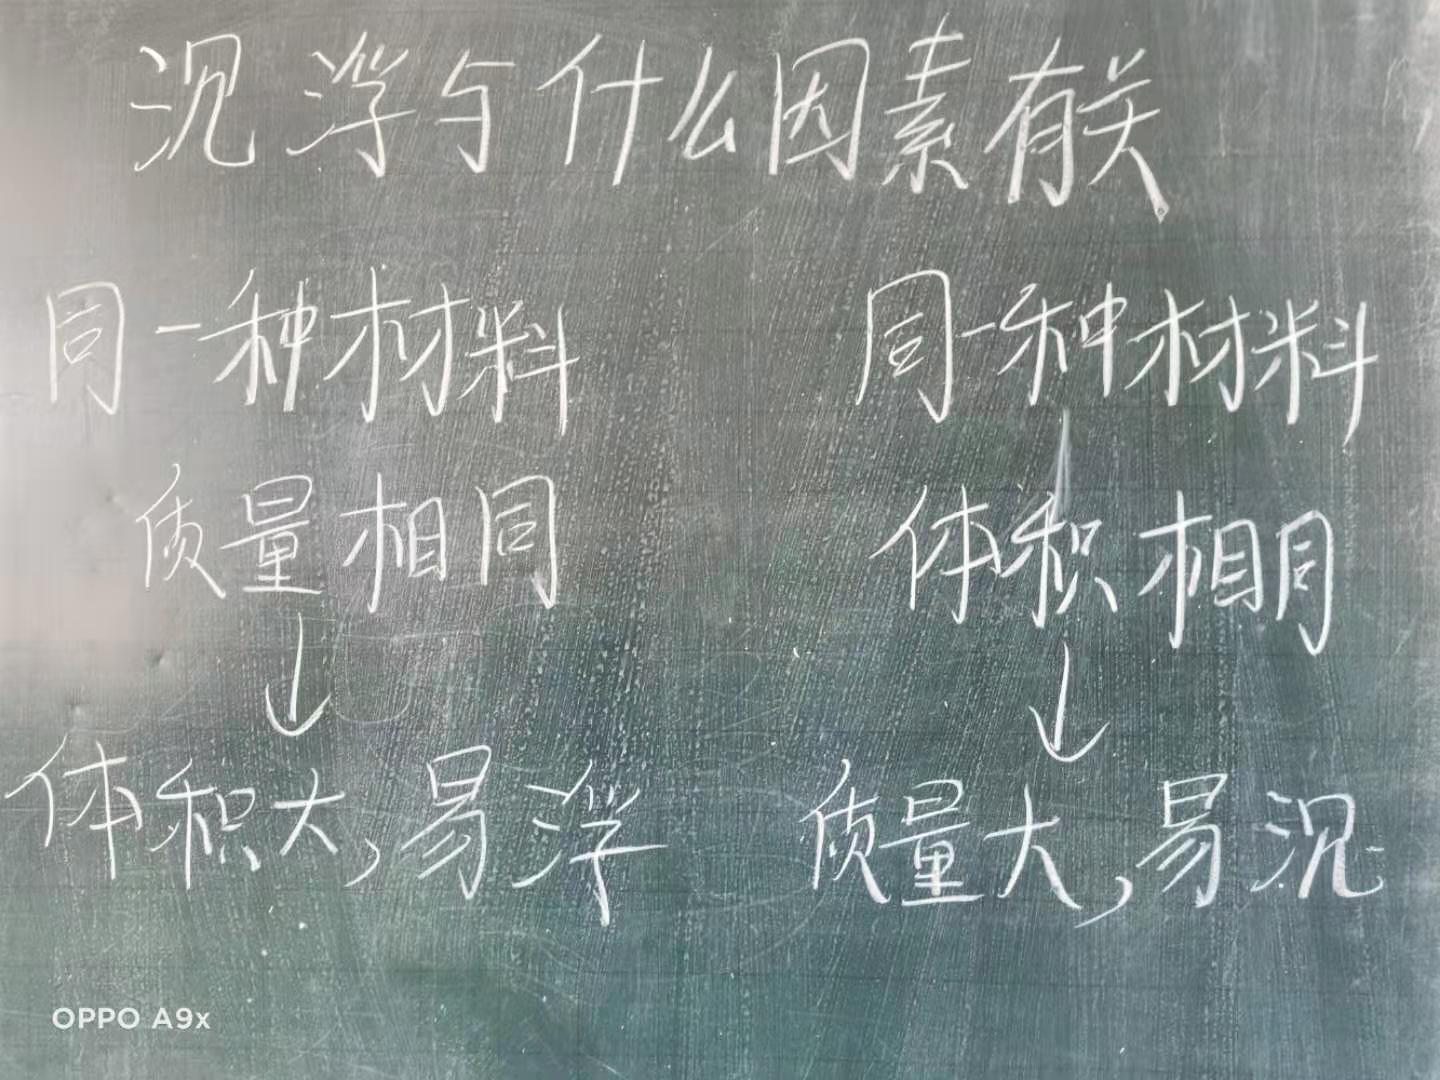 沉浮与什么因素有关
同一种材料
质量相同
↓
体积大,易浮
同一种材料
体积相同
↓
质量大,易沉
OPPO A9x